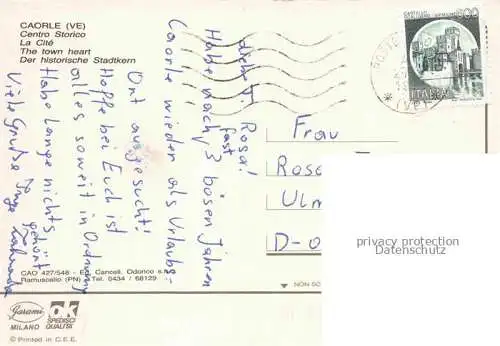 CAORLE (VE)
Centro Storico
La Cité
The town heart
Der historische Stadtkern
Rosa!
Habe nach fast 3 bösen Jahren
Caorle wieder als Urlaubs-
Ort ausgesucht!
Hoffe bei Euch ist
alles soweit in Ordnung
Habe lange nichts
gehört
Viele Grüße
Frau
Rosa
Ulm
D-
ITALIA
CAO 427/548 - Ed. Cancell. Odorico s.n.
Ramuscello (PN) - Tel. 0434 / 68129
Garami
MILANO
OK
SPEDISCI
QUALITÀ
© Printed in C.E.E.
NON SC
privacy protection
Datenschutz